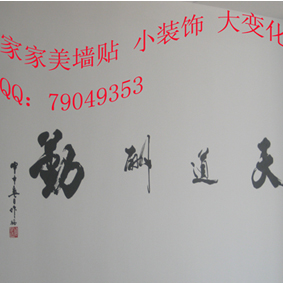 家家美墙贴 小装饰 大变化
QQ：79049353
勤 酬 道 天